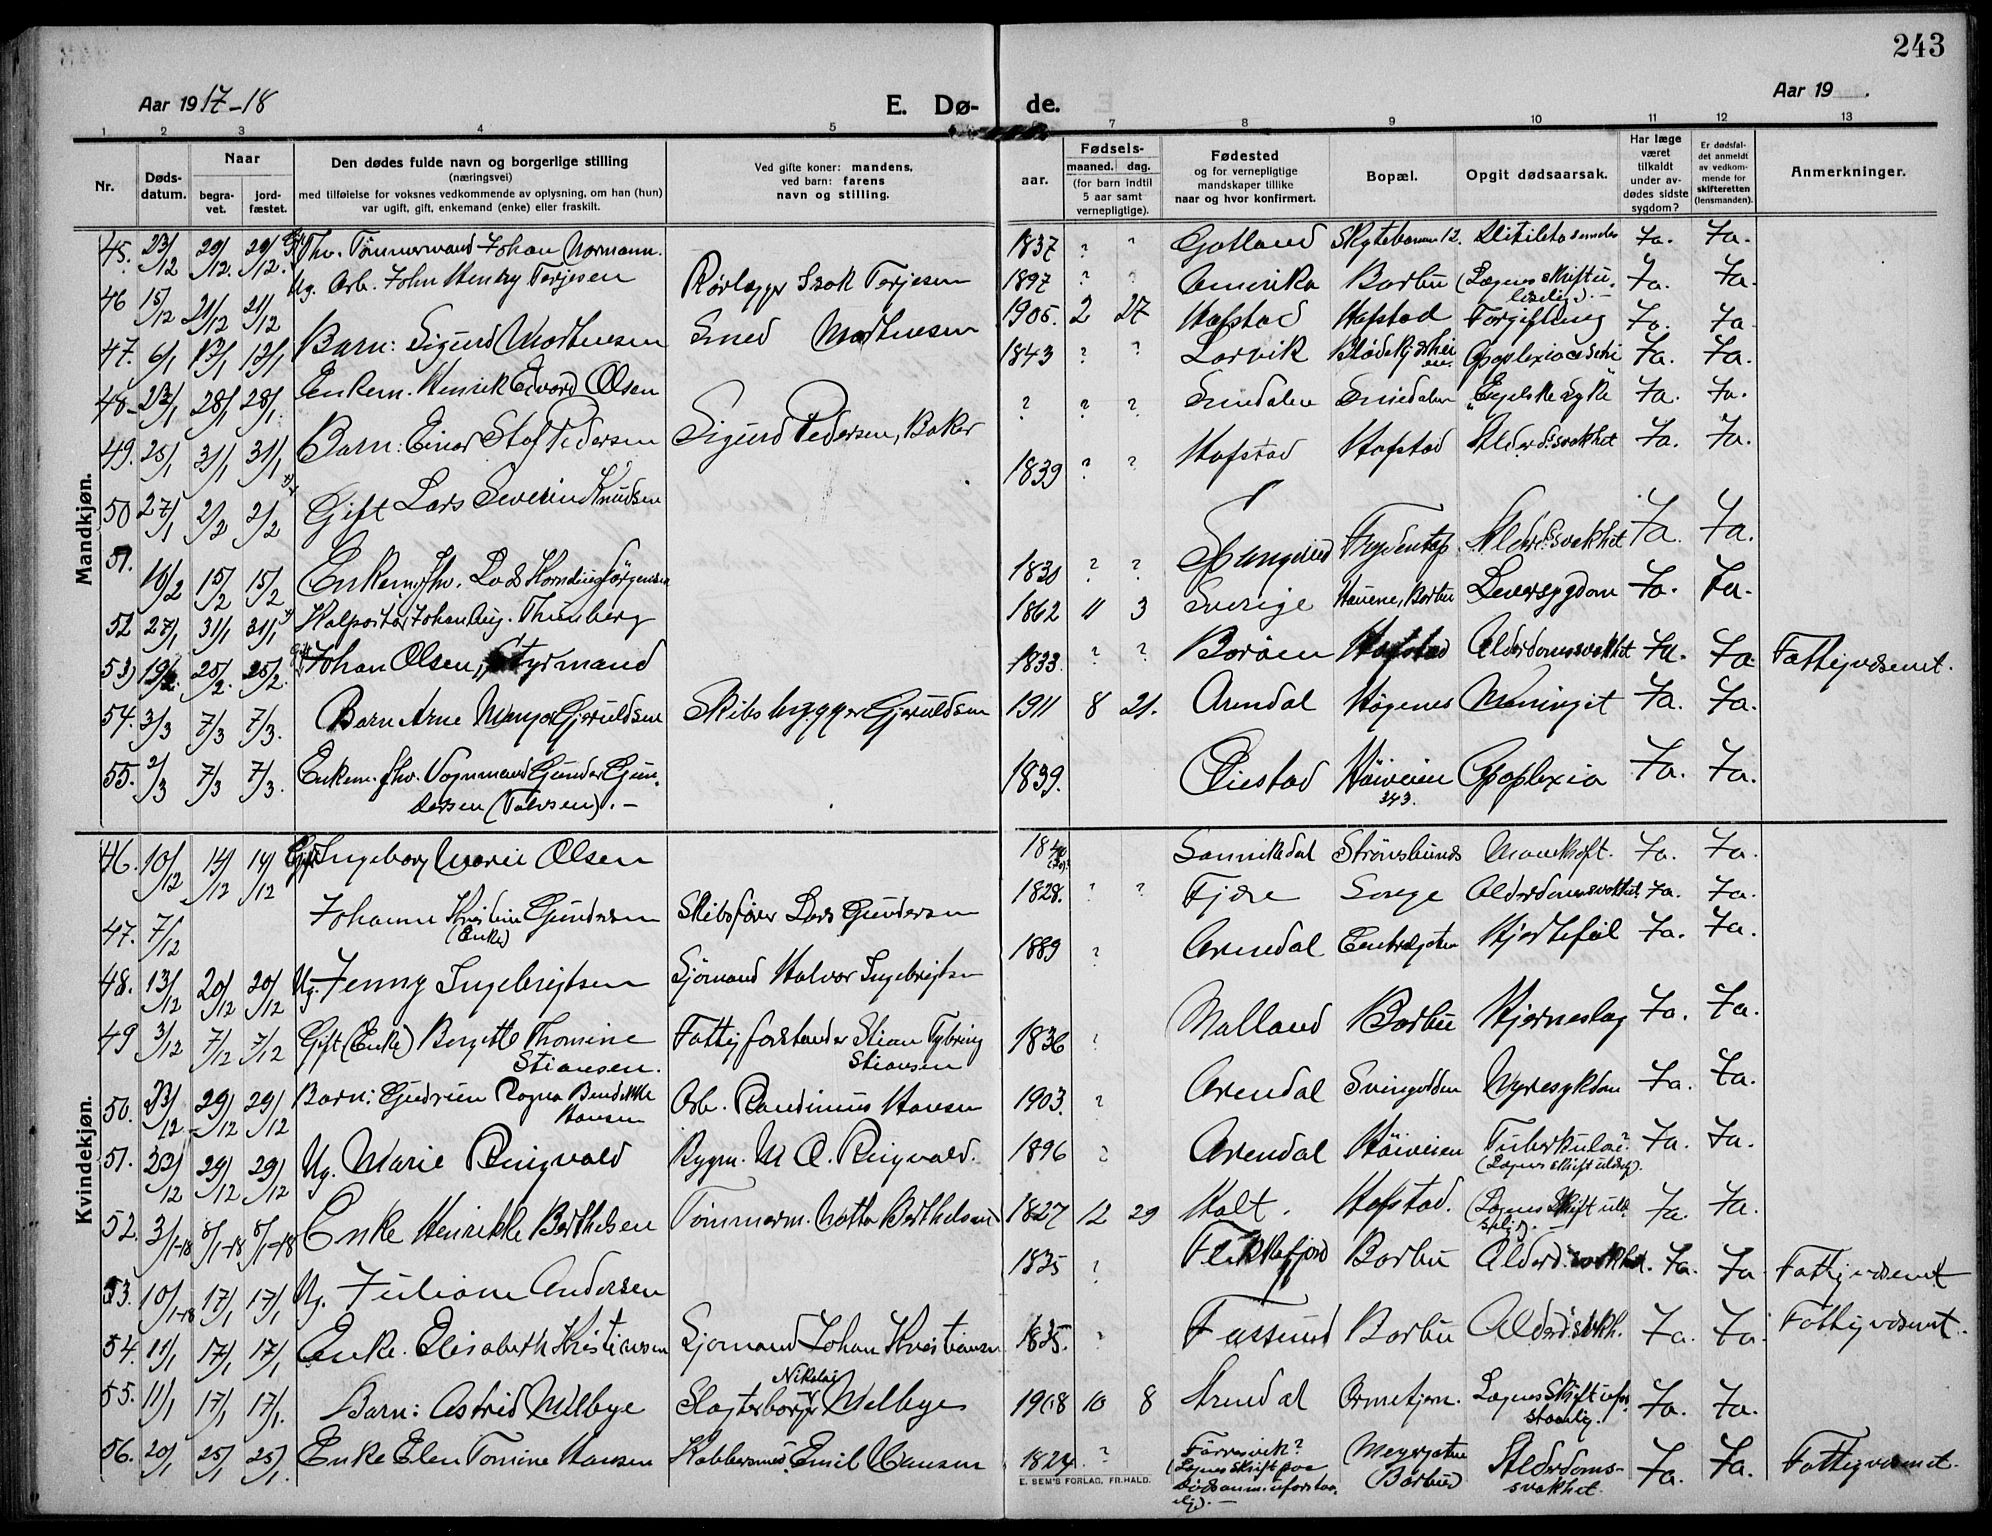 243
Aar 1917-18
E. Dø- de.
Aar 19
1 2 3 4 5 7 8 9 10 11 12 13
Nr.
Døds-datum.
Naar
begra-vet.
jord-fæstet.
Den dødes fulde navn og borgerlige stilling
(næringsvei)
med tilføielse for voksnes vedkommende av oplysning, om han (hun)
var ugift, gift, enkemand (enke) eller fraskilt.
Ved gifte koner: mandens,
ved barn: farens
navn og stilling.
aar.
Fødsels-
maaned. dag.
(for barn indtil
5 aar samt
vernepligtige).
Fødested
og for vernepligtige
mandskaper tillike
naar og hvor konfirmert.
Bopæl.
Opgit dødsaarsak.
Har læge
været
tilkaldt
under av-
dødes sidste
sygdom?
Er dødsfal-
det anmeldt
av vedkom-
mende for
skifteretten
(lensmanden).
Anmerkninger.
Mandkjøn.
45. 23/12 29/12. 29/12. Fhv. Tømmermand Johan Normann. 1837 ? " Gotland Ja. Ja.
46 15/12 21/12 21/12 Ug. Arb. John Henry Terjesen Rørlegger Isak Terjesen 1897 ? " Amerika Barbu (Lægens skrift ulæselig).- Ja. Ja.
47. 6/1 13/1 13/1 Barn: Sigurd Mathiesen Smed Mathiesen 1905. 2 27 Hafstad Hafstad Forgiftning Ja. Ja
48- 23/1 28/1 28/1. Enkem. Henrik Edvard Olsen 1843 ? " Larvik Ja. Ja.
49. 25/1 31/1 31/1 Barn: Einar Olaf Pedersen Sigurd Pedersen, Baker ? ? ? Smedalen "Engelske syke" Ja. Ja.
50 27/1 2/2 2/2 Gift Lars Severin Knudsen 1839 ? ? Hafstad Hafstad Alderd.svakhet Ja. Ja.
51. 10/2 15/2 15/2 Enkem. Fhv. Jørgensen 1830 ? ? Alderd.svakhet Ja. Ja.
52 27/1 31/1 31/1 Kolportør Johan Aug. Thunberg 1862 11 3 Sverige Barbu Leversygdom Ja. Ja.
53) 19/2. 25/2. 25/2. Gift Johan Olsen, Styrmand 1833. ? ? Borøen Hafstad Alderdomssvakhet Ja. Ja. Fattigvæsenet.
54. 3/3 7/3 7/3. Barn Arne Gjeruldsen Skibsbygger Gjeruldsen 1911 8 21. Arendal Høgenes Meningit Ja. Ja.
55. 2/3 7/3 7/3. Enkem. fhv. Vognmand Gunder Gundersen (Talvsen).- 1839. Øiestad Høiveien 343. Apoplexia Ja. Ja.
Kvindekjøn.
46. 10/12 14/12 14/12 Gift Ingeborg Marie Olsen 184 Sannikedal Strømsbunds Mavekræft. Ja. Ja.
47. 7/12 Johanne Kristine Gundersen (Enke) Skibsfører Lars Gundersen 1828. ? " Fjære Longe Alderdomssvakhet Ja. Ja.
48. 13/12 20/12 20/12 Ug. Jenny Ingebrigtsen Sjømand Halvor Ingebrigtsen 1889 ? Arendal Centralgaten Hjertefeil Ja. Ja.
49 3/12 7/12 7/12 Gift (Enke) Bergitte Thomine Stiansen. Fattigforstander Stian Tybring Stiansen 1836 ? Malland Barbu Hjerneslag Ja. Ja.
50. 23/12 29/12 29/12 Barn: Gudrun Ragna Bendikke Hansen Arb. Randinius Hansen 1903. ? Arendal Svinodden Nyresykdom Ja. Ja.
51. 22/12 29/12 29/12 Ug. Marie Ringvald Bygm. M. A. Ringvald. 1896 ? Arendal Høiveien Tuberkulose? (Lægens skrift utydelig). Ja. Ja.
52. 3/1-18 8/1-18 8/1-18 Enke Henrikke Berthelsen Tømmerm. Berthelsen 1827 12 29 Holt. Hafstad. (Lægens skrift ulæselig).- Ja. Ja.
53. 10/1-18 17/1 17/1 Ug. Juliane Andersen 1835 ? Flekkefjord Barbu Alderd.svakhet. Ja. Ja Fattigvæsenet
54. 11/1 17/1 17/1 Enke. Elisabeth Kristiansen Sjømand Johan Kristiansen 1835. " Fossund Barbu Alderd.svakh. Ja. Ja. Fattigvæsenet.
55. 11/1 17/1 17/1. Barn: Astrid Melbye Slagterborger Nikolai Melbye 1908 10 8 Arendal Ormetjern. Lægens skrift uforstaaelig. Ja. Ja.
56. 20/1 25/1 25/1. Enke Elen Tomine Hansen Kobbersmed. Emil Hansen 1824. ? Færresvik? (Lægens skrift paa dødsanm. uforstaaelig).- (Barbu) Alderdoms-svakhet. Ja. Ja. Fattigvæsenet.
E. SEM'S FORLAG, FR.HALD.